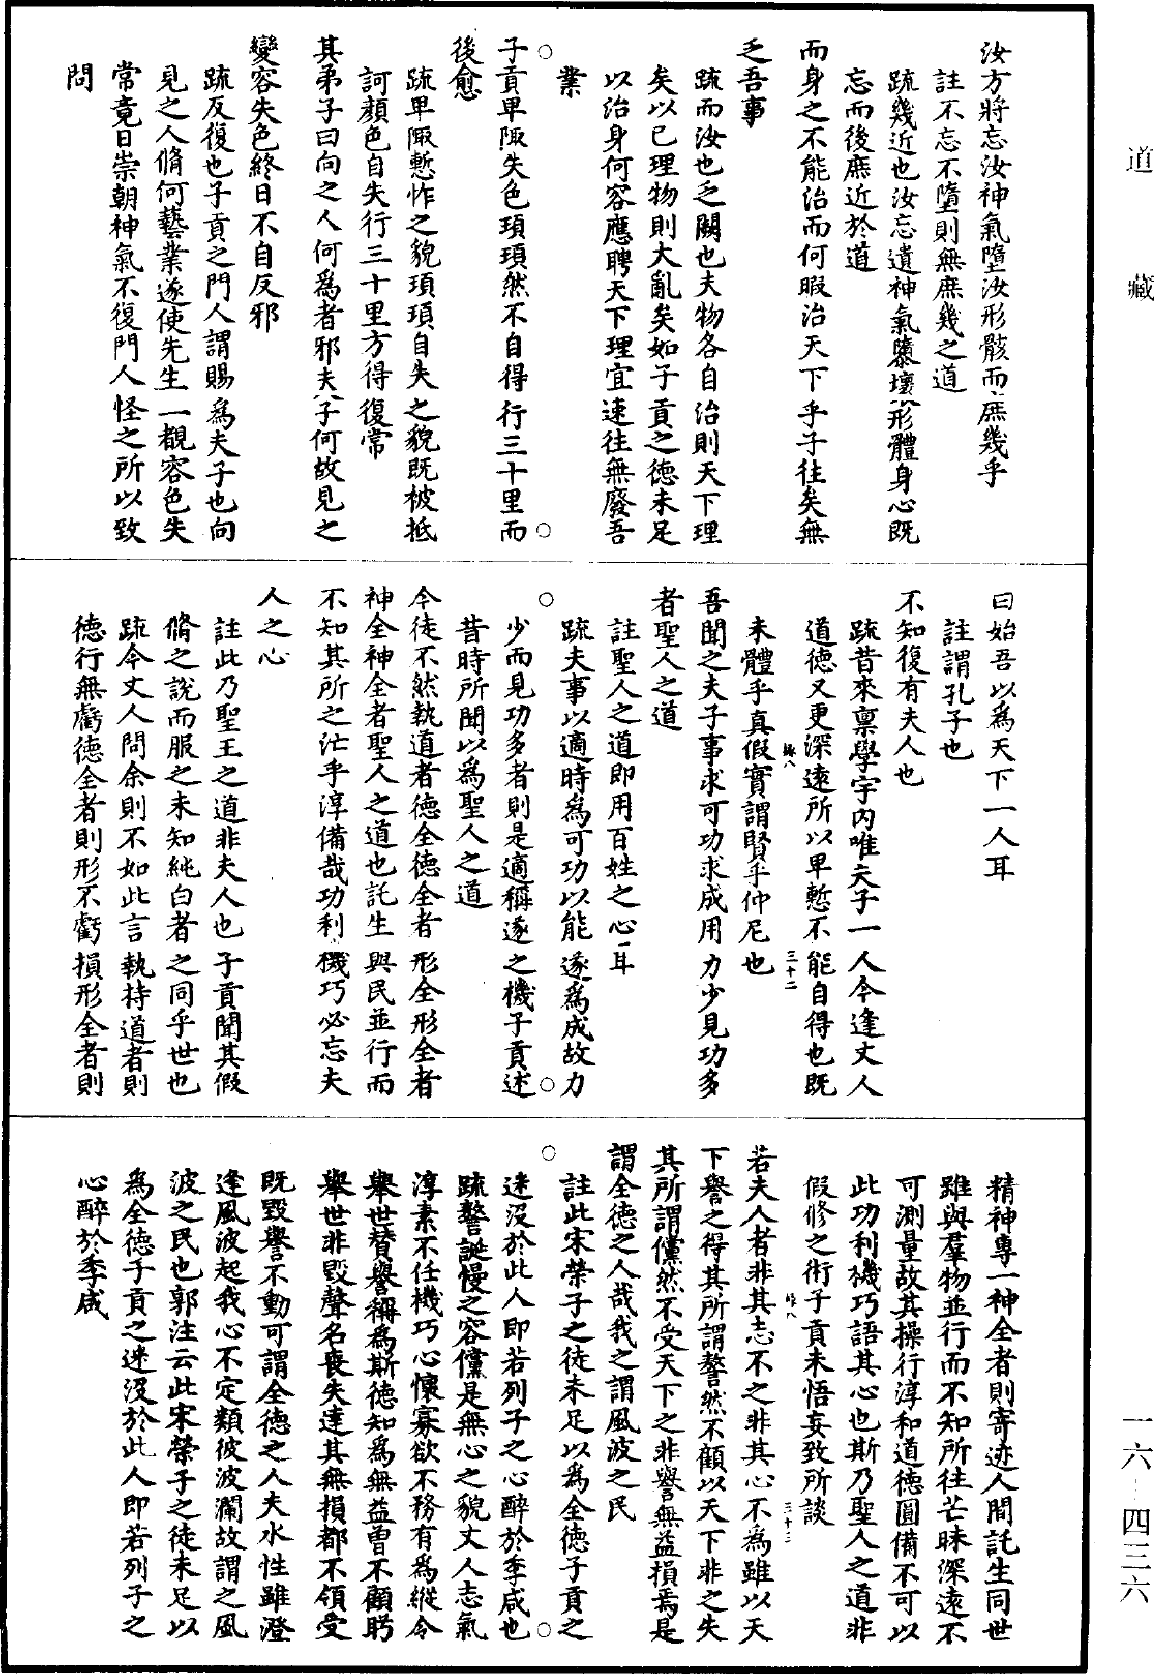 道藏
一六—四三六
汝方將忘汝神氣墮汝形骸而庶幾乎
註不忘不墮則無庶幾之道
疏幾近也汝忘遺神氣隳壞形體身心既
忘而後庶近於道
而身之不能治而何暇治天下乎子往矣無
乏吾事
疏而汝也乏闕也夫物各自治則天下理
矣以已理物則大亂矣如子貢之德未足
以治身何容應聘天下理宜速往無廢吾
業
○子貢卑陬失色頊頊然不自得行三十里而○
後愈
疏卑陬慙怍之貌頊頊自失之貌既被抵
訶顏色自失行三十里方得復常
其弟子曰向之人何爲者邪夫子何故見之
變容失色終日不自反邪
疏反復也子貢之門人謂賜爲夫子也向
見之人脩何藝業遂使先生一覩容色失
常竟日崇朝神氣不復門人怪之所以致
問
曰始吾以爲天下一人耳
註謂孔子也
不知復有夫人也
疏昔來稟學宇內唯夫子一人今逢丈人
道德又更深遠所以卑慙不能自得也既
緣八 三十二
未體乎真假實謂賢乎仲尼也
吾聞之夫子事求可功求成用力少見功多
者聖人之道
註聖人之道即用百姓之心耳
疏夫事以適時爲可功以能遂爲成故力
○少而見功多者則是適稱遂之機子貢述○
昔時所聞以爲聖人之道
今徒不然執道者德全德全者形全形全者
神全神全者聖人之道也託生與民並行而
不知其所之汒乎淳備哉功利機巧必忘夫
人之心
註此乃聖王之道非夫人也子貢聞其假
脩之說而服之未知純白者之同乎世也
疏今丈人問余則不如此言執持道者則
德行無虧德全者則形不虧損形全者則
精神專一神全者則寄迹人間託生同世
雖與羣物並行而不知所往芒昧深遠不
可測量故其操行淳和道德圓備不可以
此功利機巧語其心也斯乃聖人之道非
假修之術子貢未悟妄致所談
緣八 三十三
若夫人者非其志不之非其心不為雖以天
下譽之得其所謂謷然不顧以天下非之失
其所謂儻然不受天下之非譽無益損焉是
謂全德之人哉我之謂風波之民
註此宋榮子之徒未足以爲全德子貢之
○迷沒於此人即若列子之心醉於季咸也○
疏謷誕慢之容儻是無心之貌丈人志氣
淳素不任機巧心懷寡欲不務有爲縱令
舉世贊譽稱爲斯德知爲無益曾不顧眄
舉世非毀聲名喪失達其無損都不領受
既毀譽不動可謂全德之人夫水性雖澄
逢風波起我心不定類彼波瀾故謂之風
波之民也郭注云此宋榮子之徒未足以
為全德子貢之迷沒於此人即若列子之
心醉於季咸